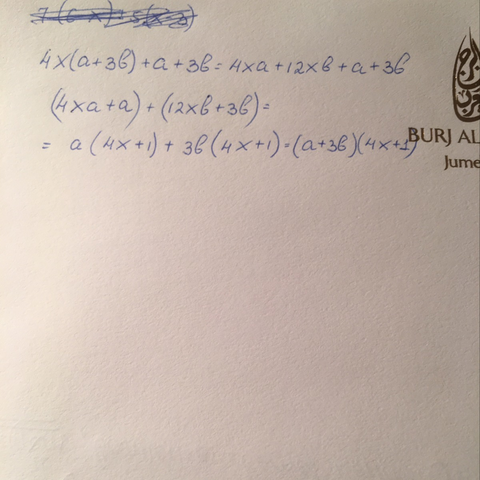 4x(a+3b)+a+3b=4xa+12xb+a+3b
(4xa+a)+(12xb+3b)=
= a(4x+1)+3b(4x+1)=(a+3b)(4x+1)
BURJ AL
Jume